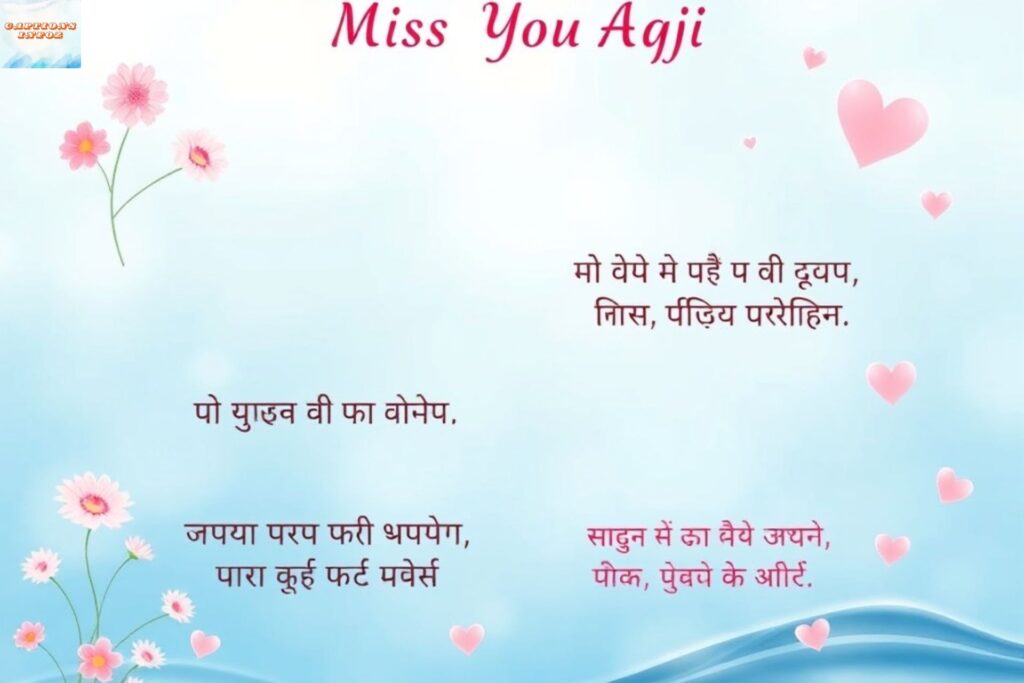 CAPTIONS
INFOZ
Miss You Aqji
मो वेपे मे पहैं प वी दूवप,
निास, र्पीज़िय पररोहिन.
पो युाइव वी फा वोमेप.
जपया परप फरी भपपेग,
पारा कूई फर्ट पवेर्स
सादुन में का वैये अथने,
पीक, पुेवपे के आीर्ट.